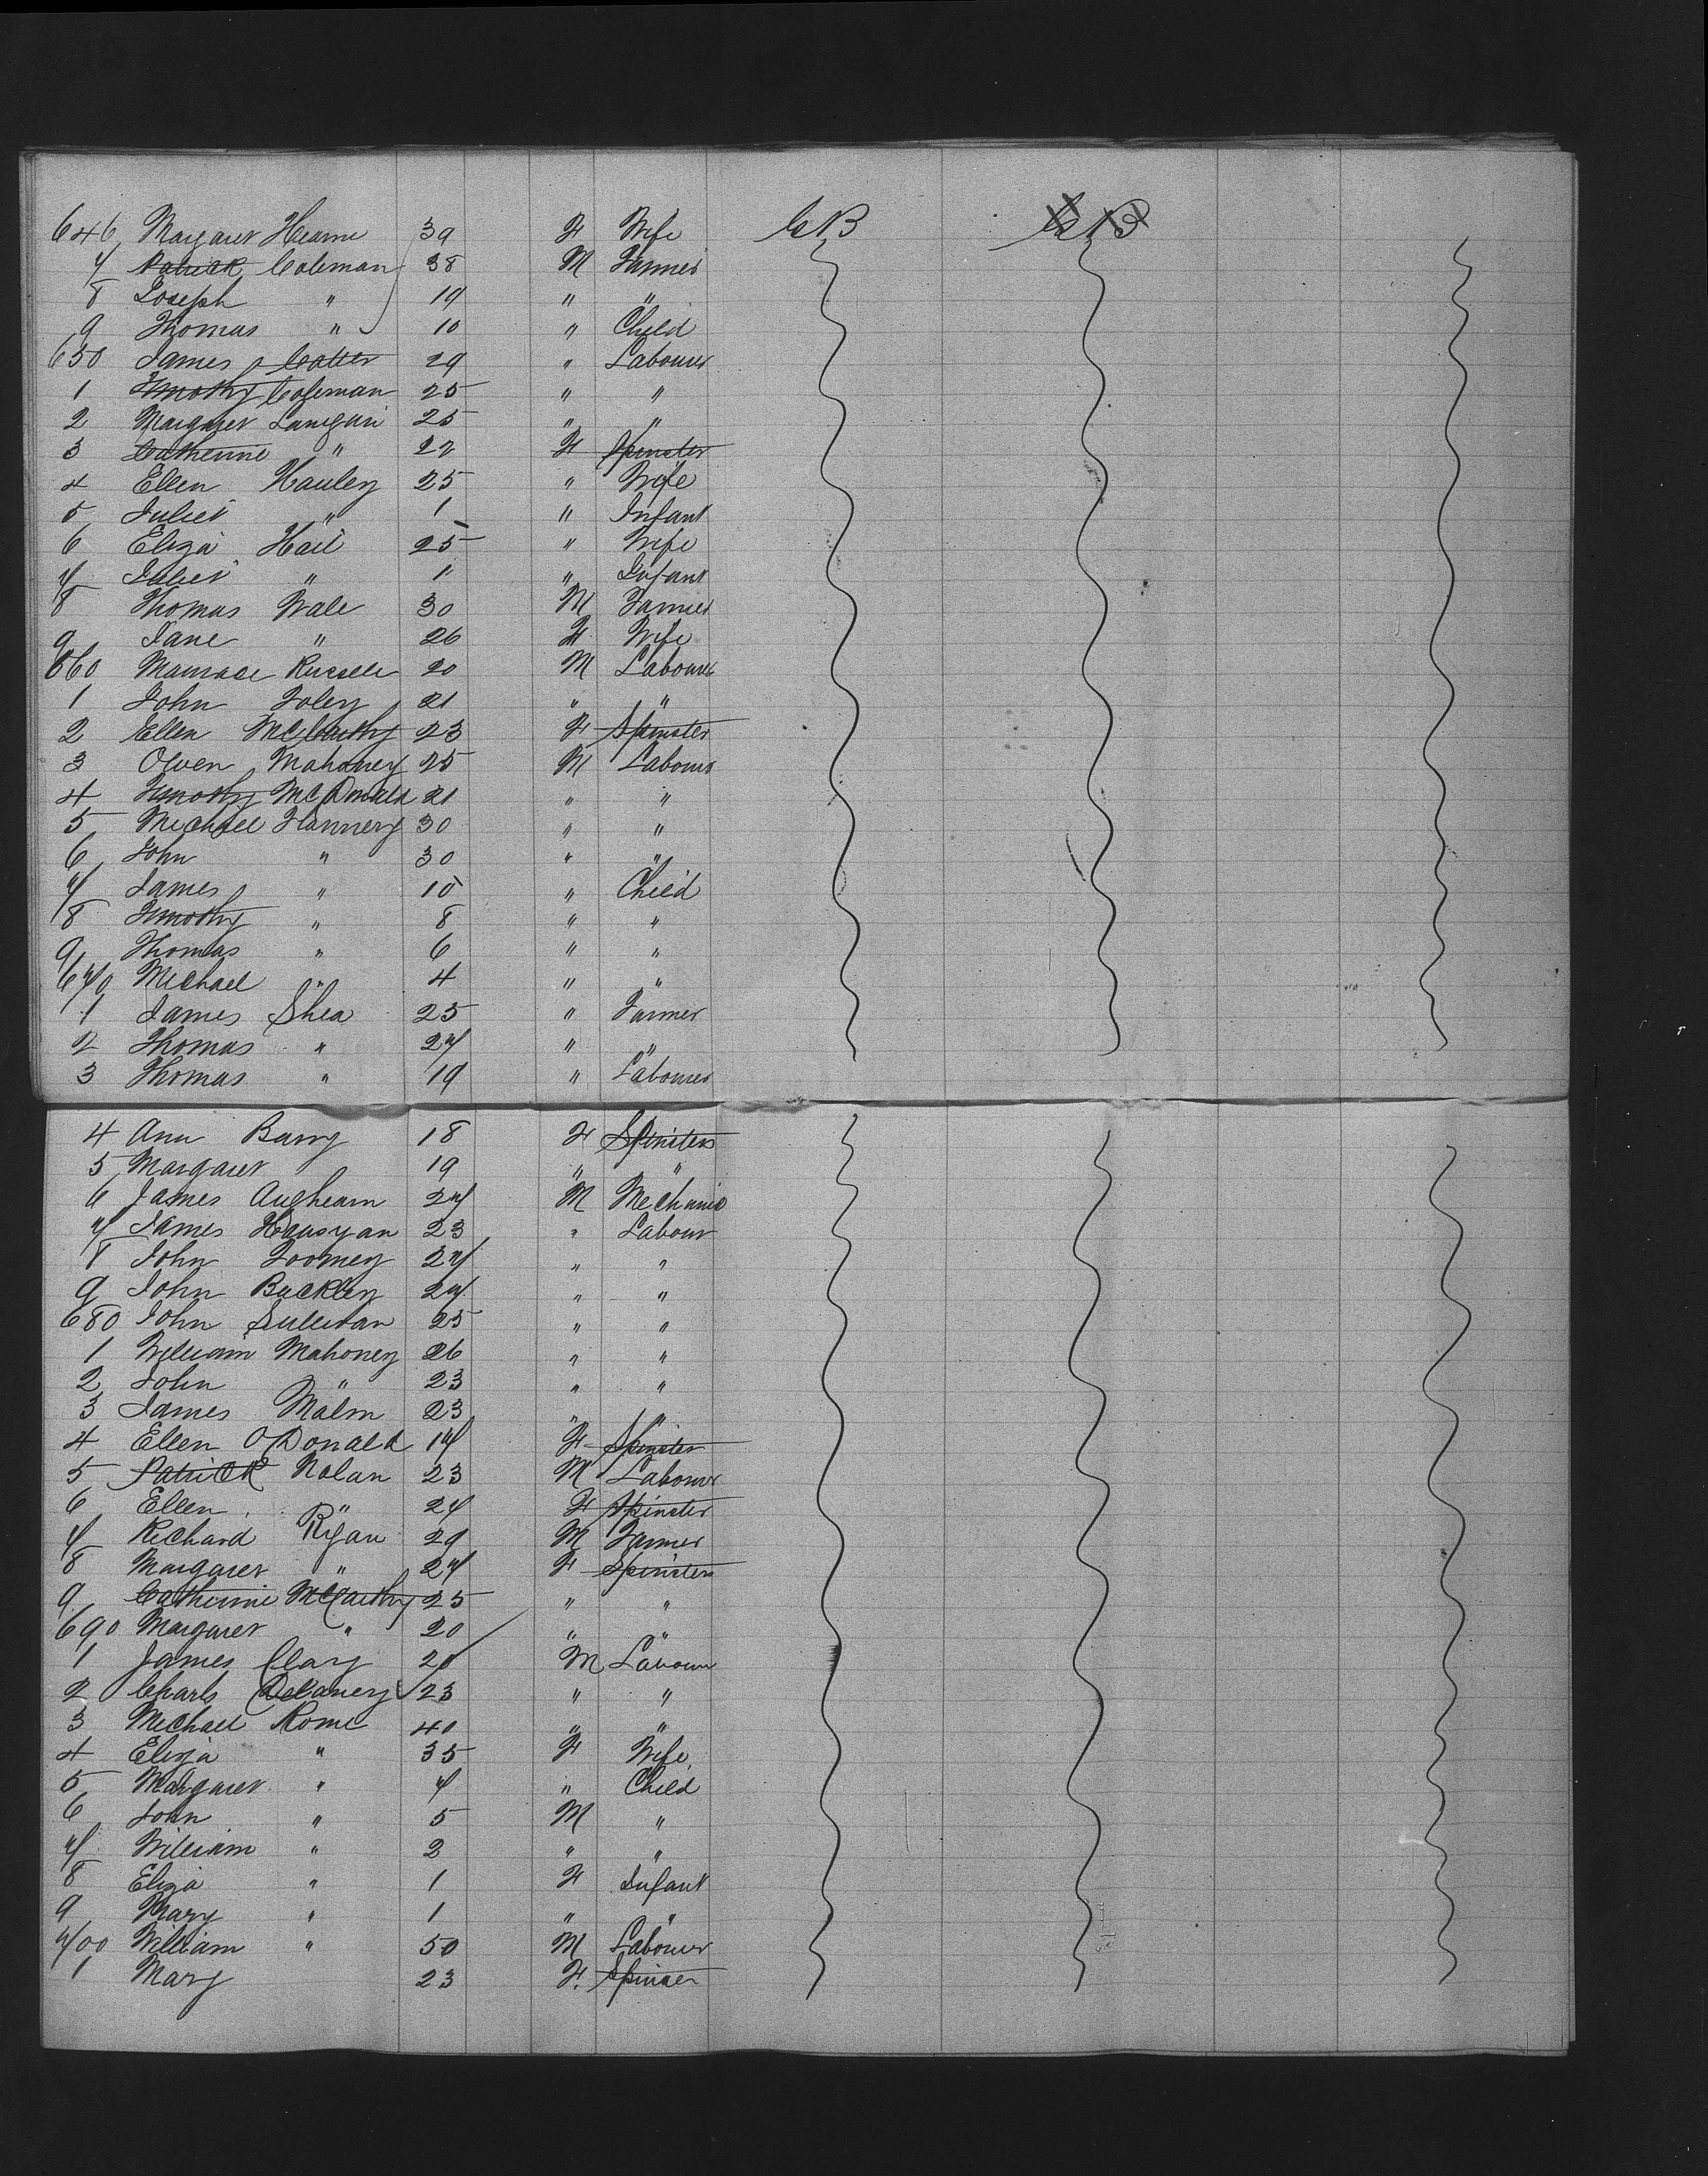 646 Margaret Hearne 39 F Wife GB GB
7 Patrick Coleman 38 M Farmer
8 Joseph " 19 " "
9 Thomas " 10 " Child
650 James Cotter 29 " Labourer
1 Timothy Coleman 25 " "
2 Margaret Lanigan 25 " "
3 Catherine " 22 F Spinster
4 Ellen Hauley 25 " Wife
5 Juliet " 1 " Infant
6 Eliza Hail 25 " Wife
7 Juliet " 1 " Infant
8 Thomas Wale 30 M Farmer
9 Jane " 26 F Wife
660 Maurace Russele 20 M Labourer
1 John Foley 21 " "
2 Ellen McCarthy 23 F Spinster
3 Owen Mahoney 25 M Labourer
4 Timothy McDonald 21 " "
5 Michael Flannery 30 " "
6 John " 30 " "
7 James " 10 " Child
8 Timothy " 8 " "
9 Thomas " 6 " "
670 Michael " 4 " "
1 James Shea 25 " Farmer
2 Thomas " 27 " "
3 Thomas " 19 " Labourer
4 Ann Barry 18 F Spinster
5 Margaret 19 " "
6 James Aughearn 27 M Mechanic
7 James 23 " Labour
8 John Toomey 27 " "
9 John Buckley 27 " "
680 John Sullivan 25 " "
1 William Mahoney 26 " "
2 John " 23 " "
3 James Malm 23 " "
4 Ellen O'Donald 17 F Spinster
5 Patrick Nolan 23 M Labourer
6 Ellen " 24 F Spinster
7 Richard Ryan 29 M Farmer
8 Margaret " 27 F Spinster
9 Catherine McCarthy 25 " "
690 Margaret " 20 " "
1 James Clary 20 M Labour
2 Charls Delaney 23 " "
3 Michael Rome 40 " "
4 Eliza " 35 F Wife
5 Margaret " 7 " Child
6 John " 5 M "
7 William " 2 " "
8 Eliza " 1 F Infant
9 Mary " 1 " "
700 William " 50 M Labourer
1 Mary 23 F. Spinster